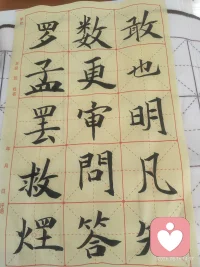 敢也明凡
数更审問答
罗孟罢救